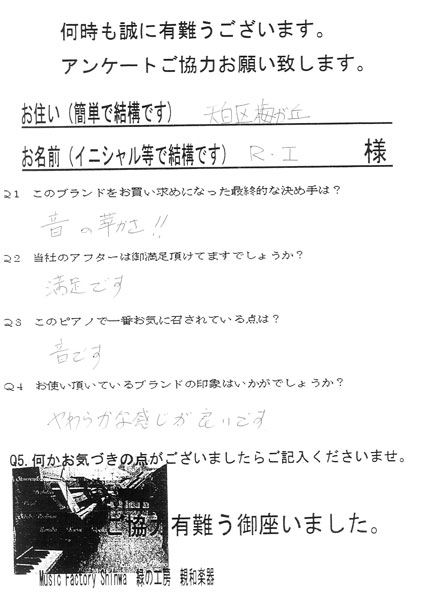 何時も誠に有難うございます。
アンケートご協力お願い致します。
お住い（簡単で結構です） 天白区梅が丘
お名前（イニシャル等で結構です） R.I 様
Q1 このブランドをお買い求めになった最終的な決め手は？
音の華かさ!!
Q2 当社のアフターは御満足頂けてますでしょうか？
満足です
Q3 このピアノで一番お気に召されている点は？
音です
Q4 お使い頂いているブランドの印象はいかがでしょうか？
やわらかな感じが良いです
Q5.何かお気づきの点がございましたらご記入くださいませ。
ご協力有難う御座いました。
Music Factory Shinwa 緑の工房 親和楽器